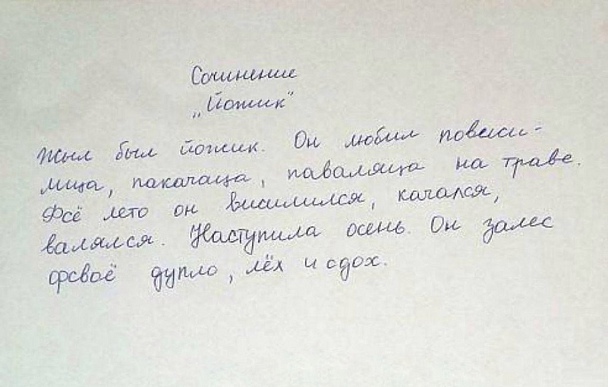 Сочинение
"Йожик"
Жыл был йожик. Он любил повыси-
лица, пакачаца, паваляца на траве.
Фсё лето он висилился, качался,
валялся. Наступила осень. Он залес
фсваё дупло, лёх и сдох.